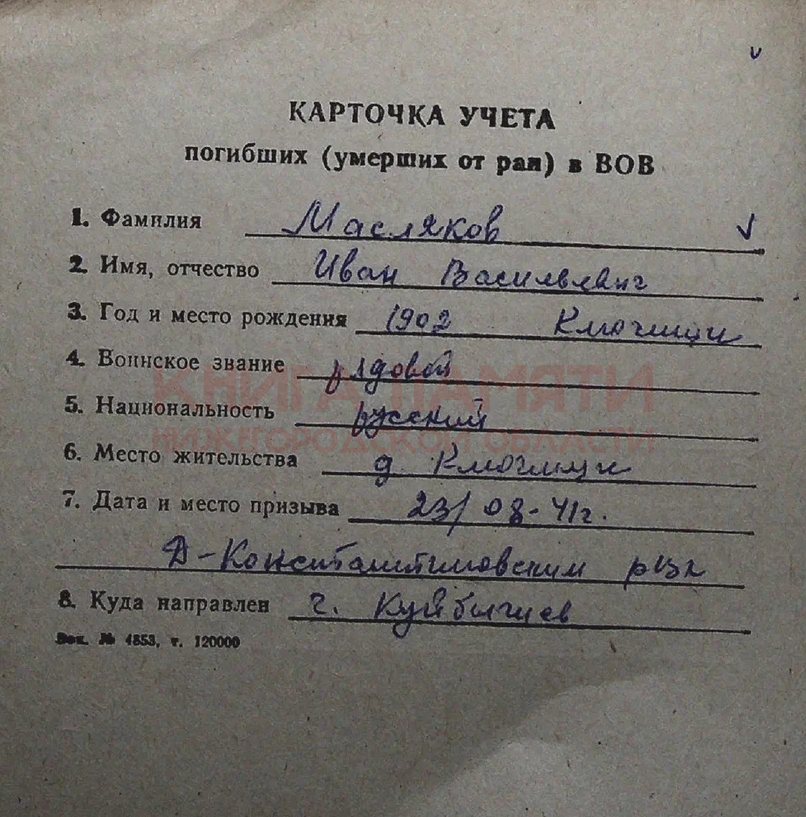 КАРТОЧКА УЧЕТА
погибших (умерших от ран) в ВОВ
1. Фамилия Масляков
2. Имя, отчество Иван Васильевич
3. Год и место рождения 1902 Ключищи
4. Воинское звание рядовой
КНИГА ПАМЯТИ
5. Национальность русский
НИЖЕГОРОДСКОЙ ОБЛАСТИ
6. Место жительства д. Ключищи
7. Дата и место призыва 23/08-41г.
Д-Константиновским рвк
8. Куда направлен г. Куйбышев
Зак. № 4853, т. 120000